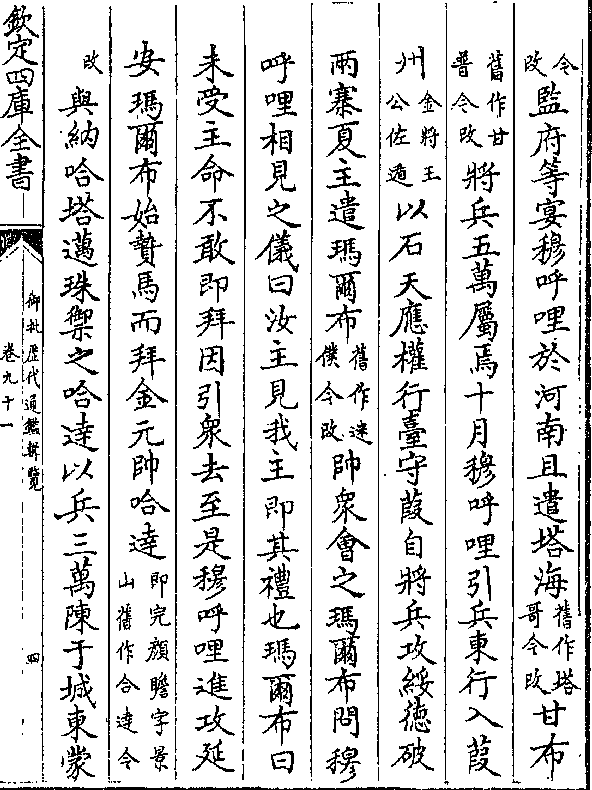 令改監府等宴穆呼哩於河南且遣塔海舊作塔哥今改甘布
舊作甘普今改將兵五萬屬焉十月穆呼哩引兵東行入葭
州金將王公佐遁以石天應權行臺守葭自將兵攻綏德破
兩寨夏主遣瑪爾布舊作迷僕今改帥衆會之瑪爾布問穆
呼哩相見之儀曰汝主見我主即其禮也瑪爾布曰
未受主命不敢即拜因引衆去至是穆呼哩進攻延
安瑪爾布始贄馬而拜金元帥哈達即完顏瞻字景山舊作合達今
改與納哈塔邁珠禦之哈達以兵三萬陳于城東蒙
欽定四庫全書
御批歷代通鑑輯覽
卷九十一
四